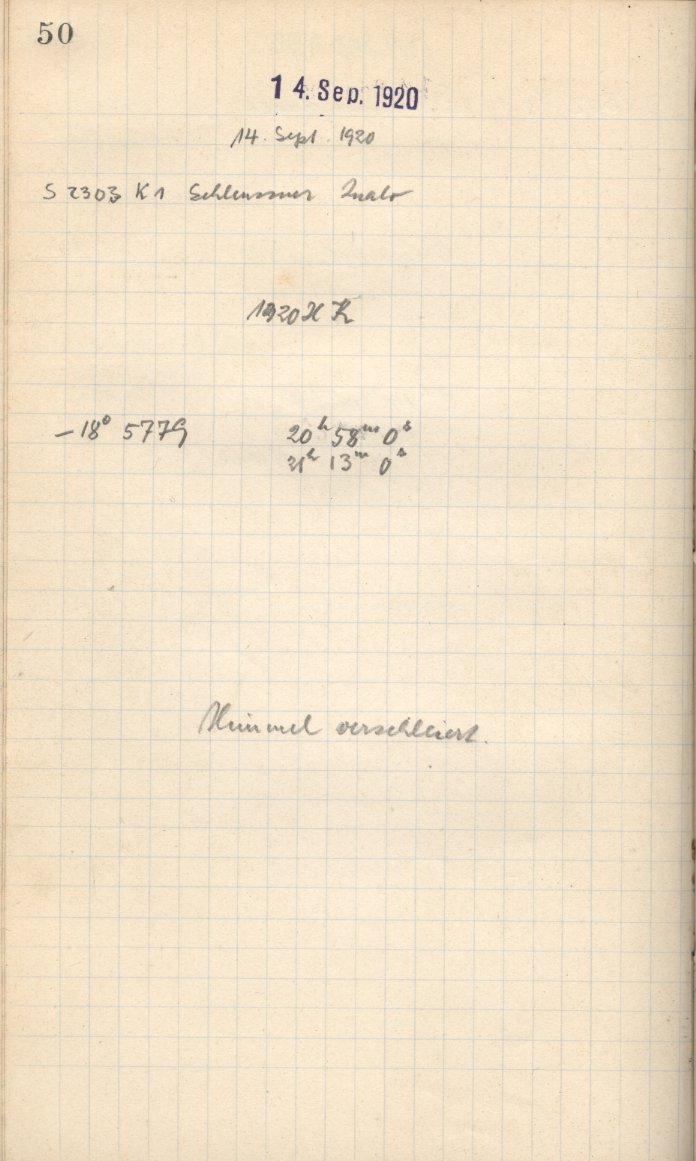 50
14. Sep. 1920
14. Sept. 1920
S 2303 K 1 Schleussner Inalo
1920 H Z
-18° 5779 20h 58m 0s
21h 13m 0s
Himmel verschleiert.